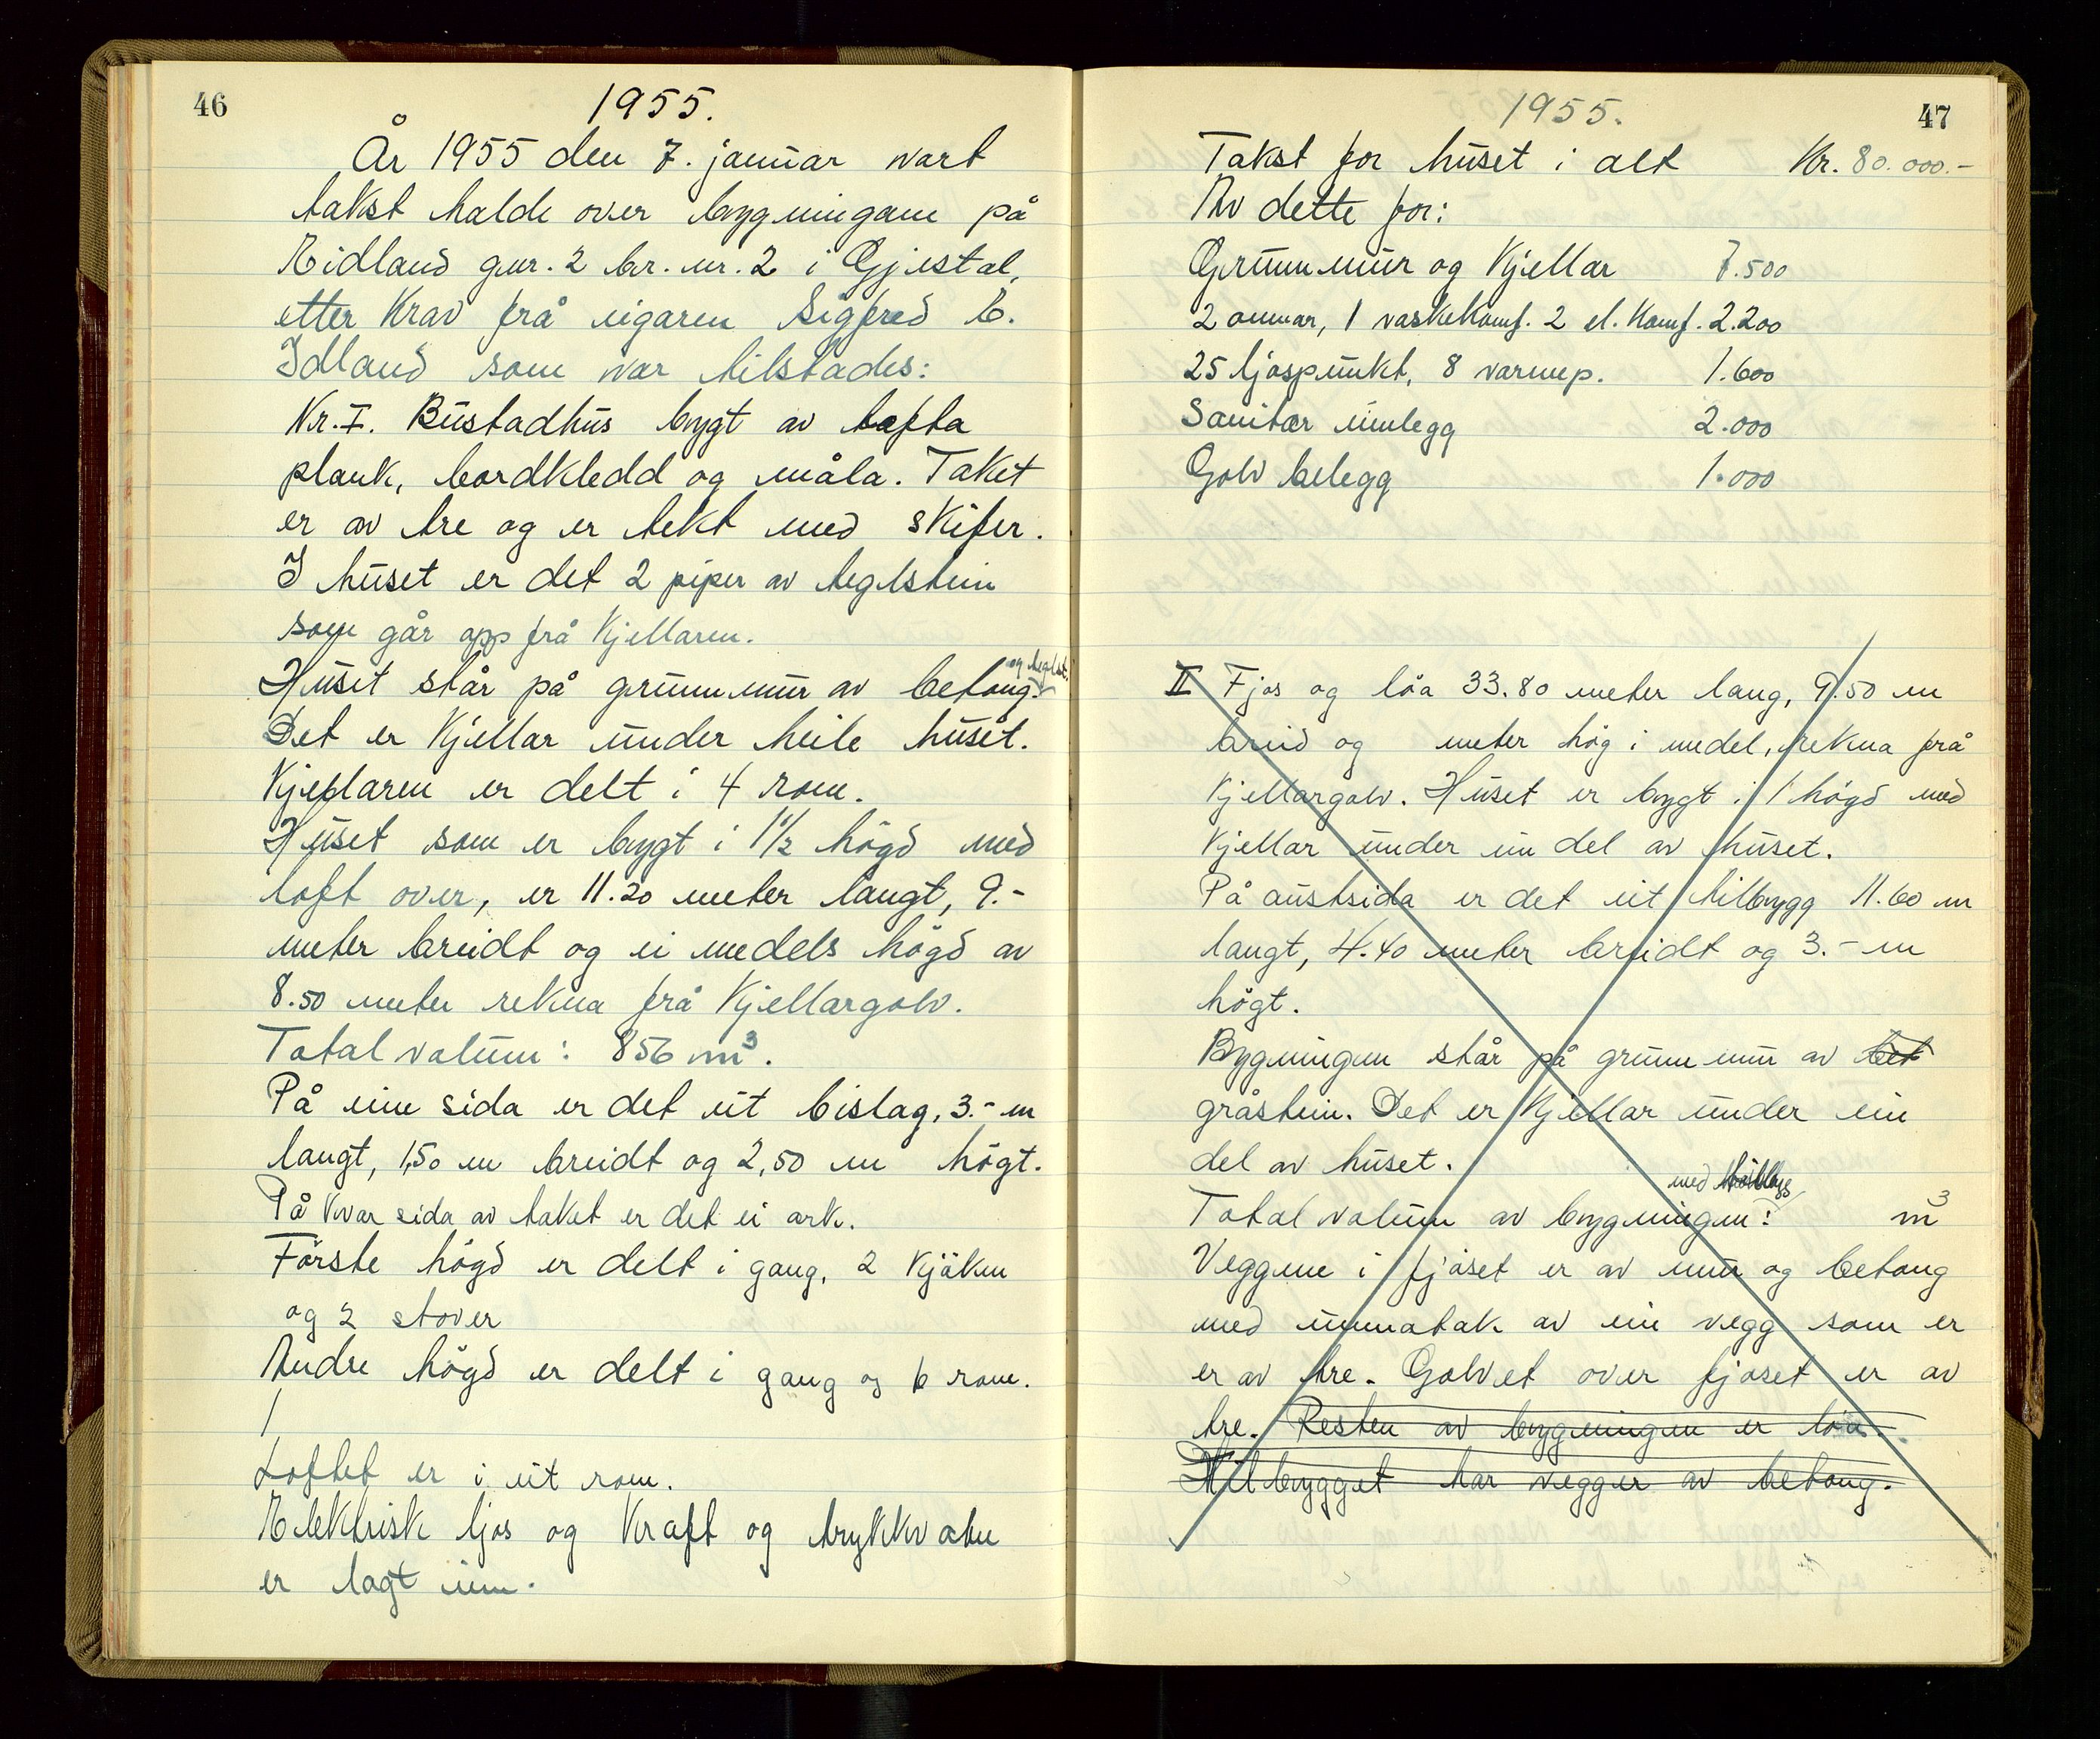 46
1955.
År 1955 den 7. januar vart
takst halde over bygningane på
Eidland gnr. 2 br. nr. 2 i Gjestal,
etter krav frå eigaren Sigfred E.
Idland som var tilstades:
Nr. I. Bustadhus bygt av tefta
plank, bordkledd og måla. Taket
er av tre og er tekt med skifer.
I huset er det 2 piper av teglstein
som går opp frå kjellaren.
Huset står på grunnmur av betong og teglst.
Det er kjellar under heile huset.
Kjellaren er delt i 4 rom.
Huset som er bygt i 1 1/2 högd med
loft over, er 11.20 meter langt, 9.-
meter breidt og ei medels högd av
8.50 meter rekna frå kjellargolv.
Total volum: 856 m³.
På eine sida er det eit bislag, 3.- m
langt, 1,50 m breidt og 2,50 m högt.
På kvar sida av taket er det ei ark.
Förste högd er delt i gang, 2 kjöken
og 2 stover
Andre högd er delt i gang og 6 rom.
Loftet er i eit rom.
Elektrisk ljos og kraft og trykkvatn
er lagt inn.
1955.
47
Takst for huset i alt Kr. 80.000.-
Av dette for:
Grunnmur og kjellar 7.500
2 omnar, 1 vaskekomf. 2 el. komf. 2.200
25 ljospunkt, 8 varmep. 1.600
Sanitær innlegg 2.000
Golv belegg 1.000
II Fjos og löa 33.80 meter lang, 9.50 m
breid og meter hög i medel, rekna frå
kjellargolv. Huset er bygt i 1 högd med
kjellar under ein del av huset.
På austsida er det eit tilbygg 11.60 m
langt, 4.40 meter breidt og 3.- m
högt.
Bygningen står på grunnmur av bet
gråstein. Det er kjellar under ein
del av huset.
Total volum av bygningen: med tilbygg m³
Veggene i fjöset er av mur og betong
med unnatak av ein vegg som er
er av tre. Golvet over fjoset er av
tre. Resten av bygningen er löa.
Tilbygget har vegger av betong.